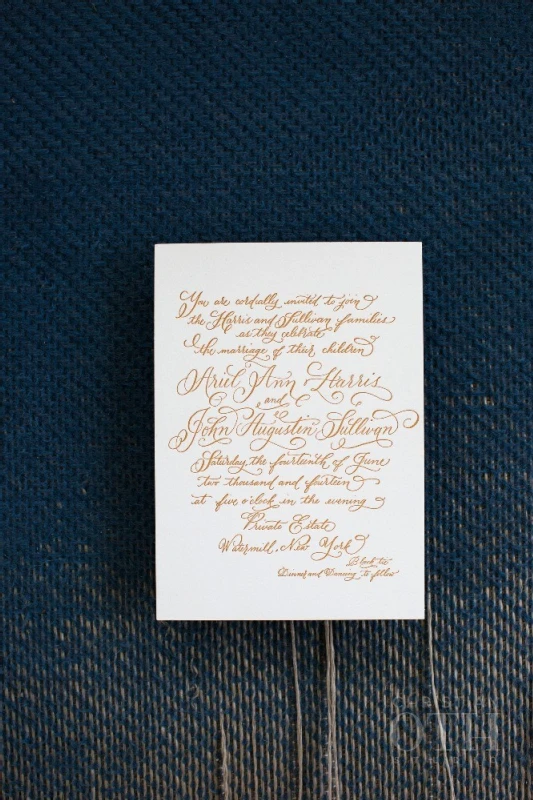 You are cordially invited to join
the Harris and Sullivan families
as they celebrate
the marriage of their children
Ariel Ann Harris
and
John Augustin Sullivan
Saturday, the fourteenth of June
two thousand and fourteen
at five o'clock in the evening
Private Estate
Watermill, New York
Black tie
Dinner and Dancing to follow
CHRISTIAN
OTH
STUDIO